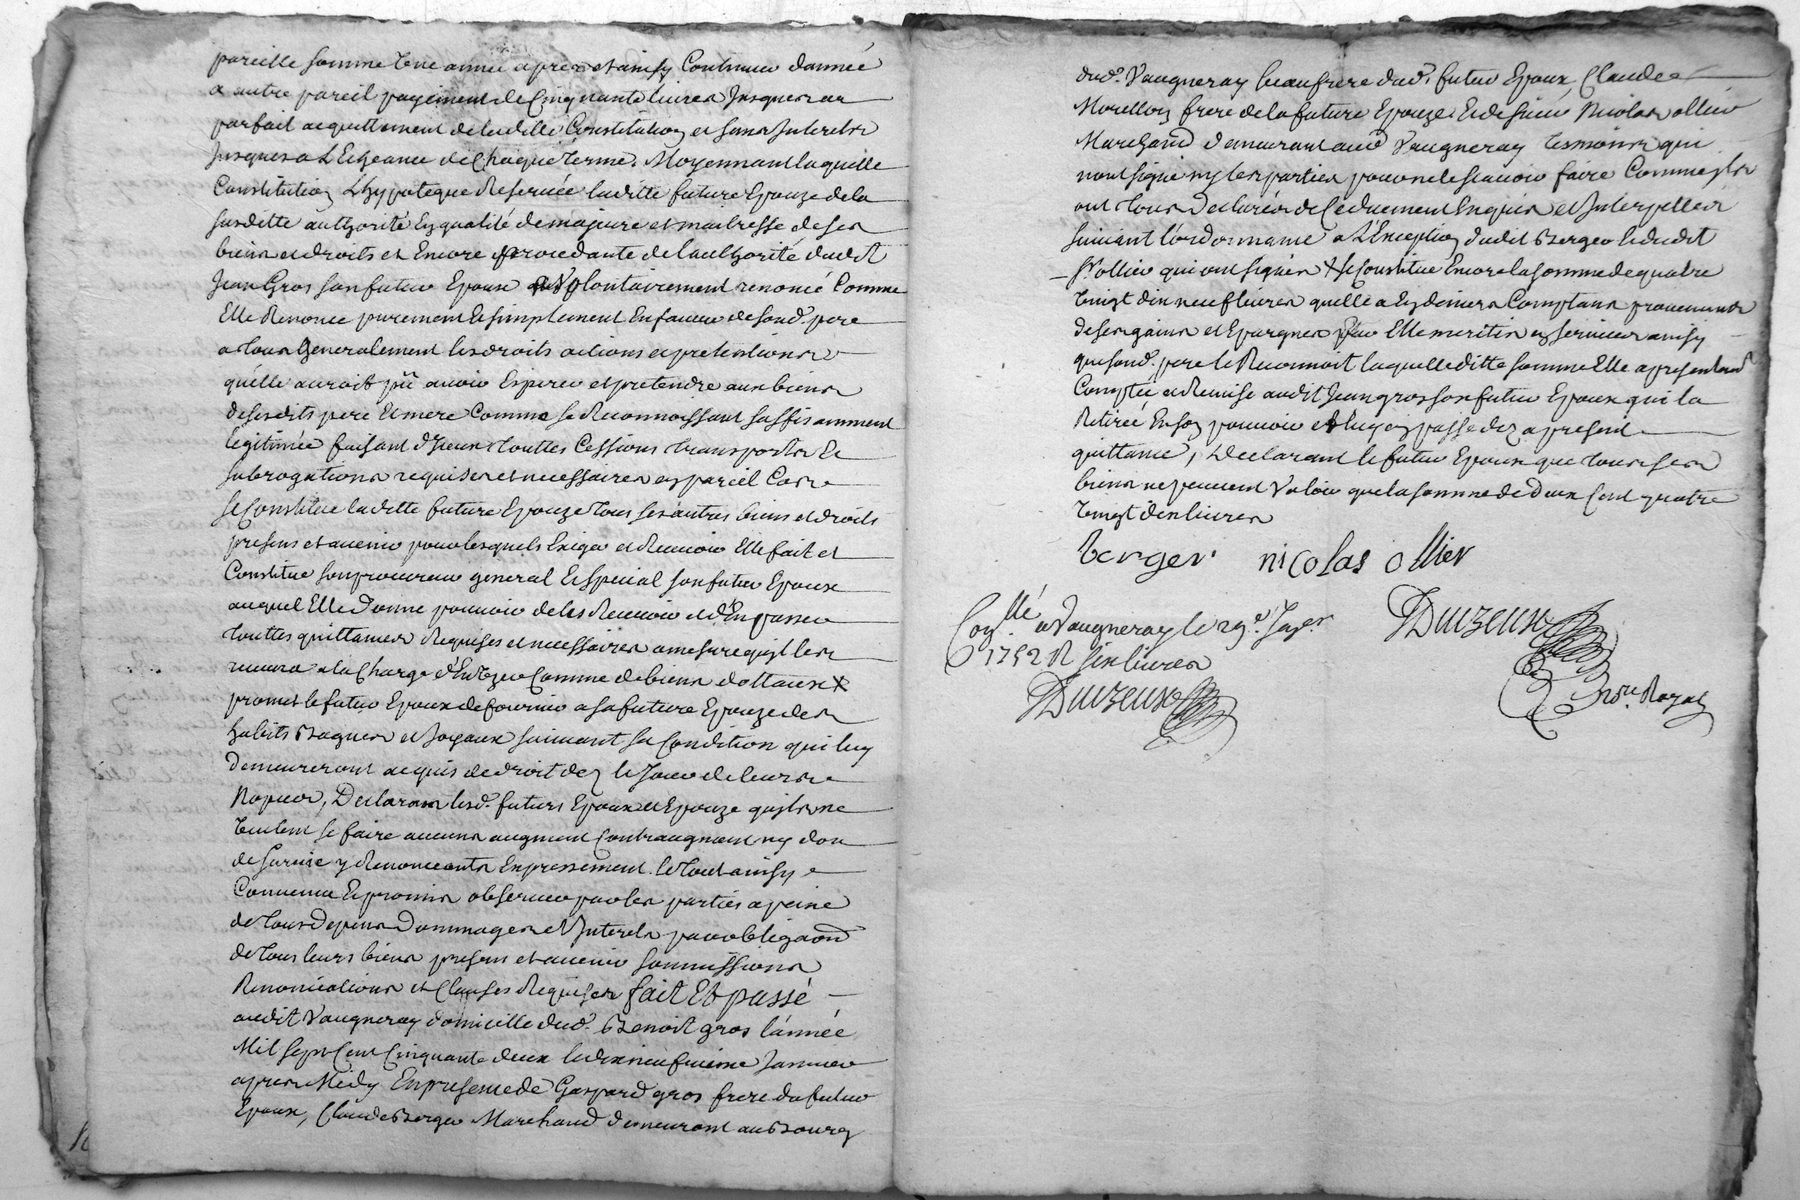 pareille somme une année apres et ainsy Continuer dannée
a autre pareil payement de Cinquante livres Jusques au
parfait acquittement de laditte Constitution et sans Interets
Jusques a L'Exigeance de Chaque terme. Moyennant laquelle
Constitution L'hypoteque Reservée laditte future Epouze de la
susditte authorité En qualité de majeure et maitresse de ses
biens et droits et Encore procedante de l'authorité dudit
Jean Gros son futur Epoux a Volontairement renoncé Comme
Elle Renonce purement Et simplement En faveur de sond. pere
a tous Generalement les droits actions et pretentions
qu'elle auroit pû avoir Esperer et pretendre aux biens
de sesdits pere Et mere Comme se Reconnoissant suffisamment
legitimée faisant d'Iceux touttes Cessions transports Et
subrogations requises et necessaires en pareil Cas
se Constitue laditte future Epouze tous ses autres biens et droits
presens et avenir pour lesquels Exiger et Recevoir Elle fait et
Constitue son procureur general Et special son futur Epoux
auquel Elle Donne pouvoir de les Recevoir et d'En passer
touttes quittances Requises et necessaires a mesure qu'il les
recevra a la Charge d'En Uzer Comme de biens dottaux X
promet le futur Epoux de fournir a sa future Epouze des
habits Bagues et Joyaux suivant sa Condition qui luy
demeureront acquis de droit dez le Jour de leurs
Nopces, Declarans lesd. futurs Epoux et Epouze qu'ils ne
veulent se faire aucuns augment Contraugment ny don
de survie y Renonceants Expressement. le tout ainsy
Convenu Et promis observer par les parties a peine
de tous Depens Dommages et Interets par obligaon
de tous leurs biens presens et avenir soumissions
Renonciations et Clauses Requises fait Et passé
audit Vaugneray domicille dud. Benoit gros l'année
Mil sept Cent Cinquante deux le dix neufvieme Janvier
apres Midy En presence de Gaspard gros frere du futur
Epoux, Claude Berger Marchand demeurant au Bourg
dud. Vaugneray beaufrere dud. futur Epoux, Claude
Morellon frere de la future Epouze Et de sieur Nicolas ollier
Marchand demeurant aud Vaugneray tesmoins qui
n'ont signé ny les parties pour ne le scavoir faire Comme ils
ont tous declarés de Ce duement Enquis et Interpellés
suivant l'ordonnance a L'Exception dudit Berger Et dudit
Sr. ollier qui ont signés X se Constitue Encore la somme de quatre
vingt dix neuf livres quelle a En deniers Comptans provenants
de ses gains et Epargnes par Elle merités en services ainsy
que sond. pere le Reconnoit laquelle ditte somme Elle a presentement
Comptée et Remise audit Jean gros son futur Epoux qui la
Retirée En son pouvoir et luy en passe dez a present
quittance, Declarant le futur Epoux que tous ses
biens ne peuvent Valoir que la somme de Deux Cent quatre
vingt dix livres
berger nicolas ollier
Conllé a Vaugneray le 29e. Janer.
1752 R six livres
Duizeux
Duizeux
Nore. Royal